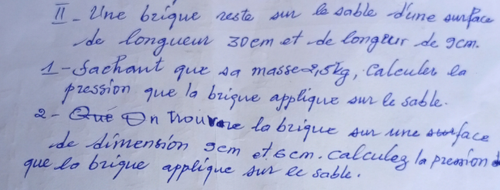 II - Une brique reste sur le sable d'une surface
de longueur 30cm et de longeur de 9cm.
1 - Sachant que sa masse 2,5kg, Calculer la
pression que la brique applique sur le sable.
2 - On trouve la brique sur une surface
de dimension 9cm et 6cm. Calculez la pression
que la brique applique sur le sable.